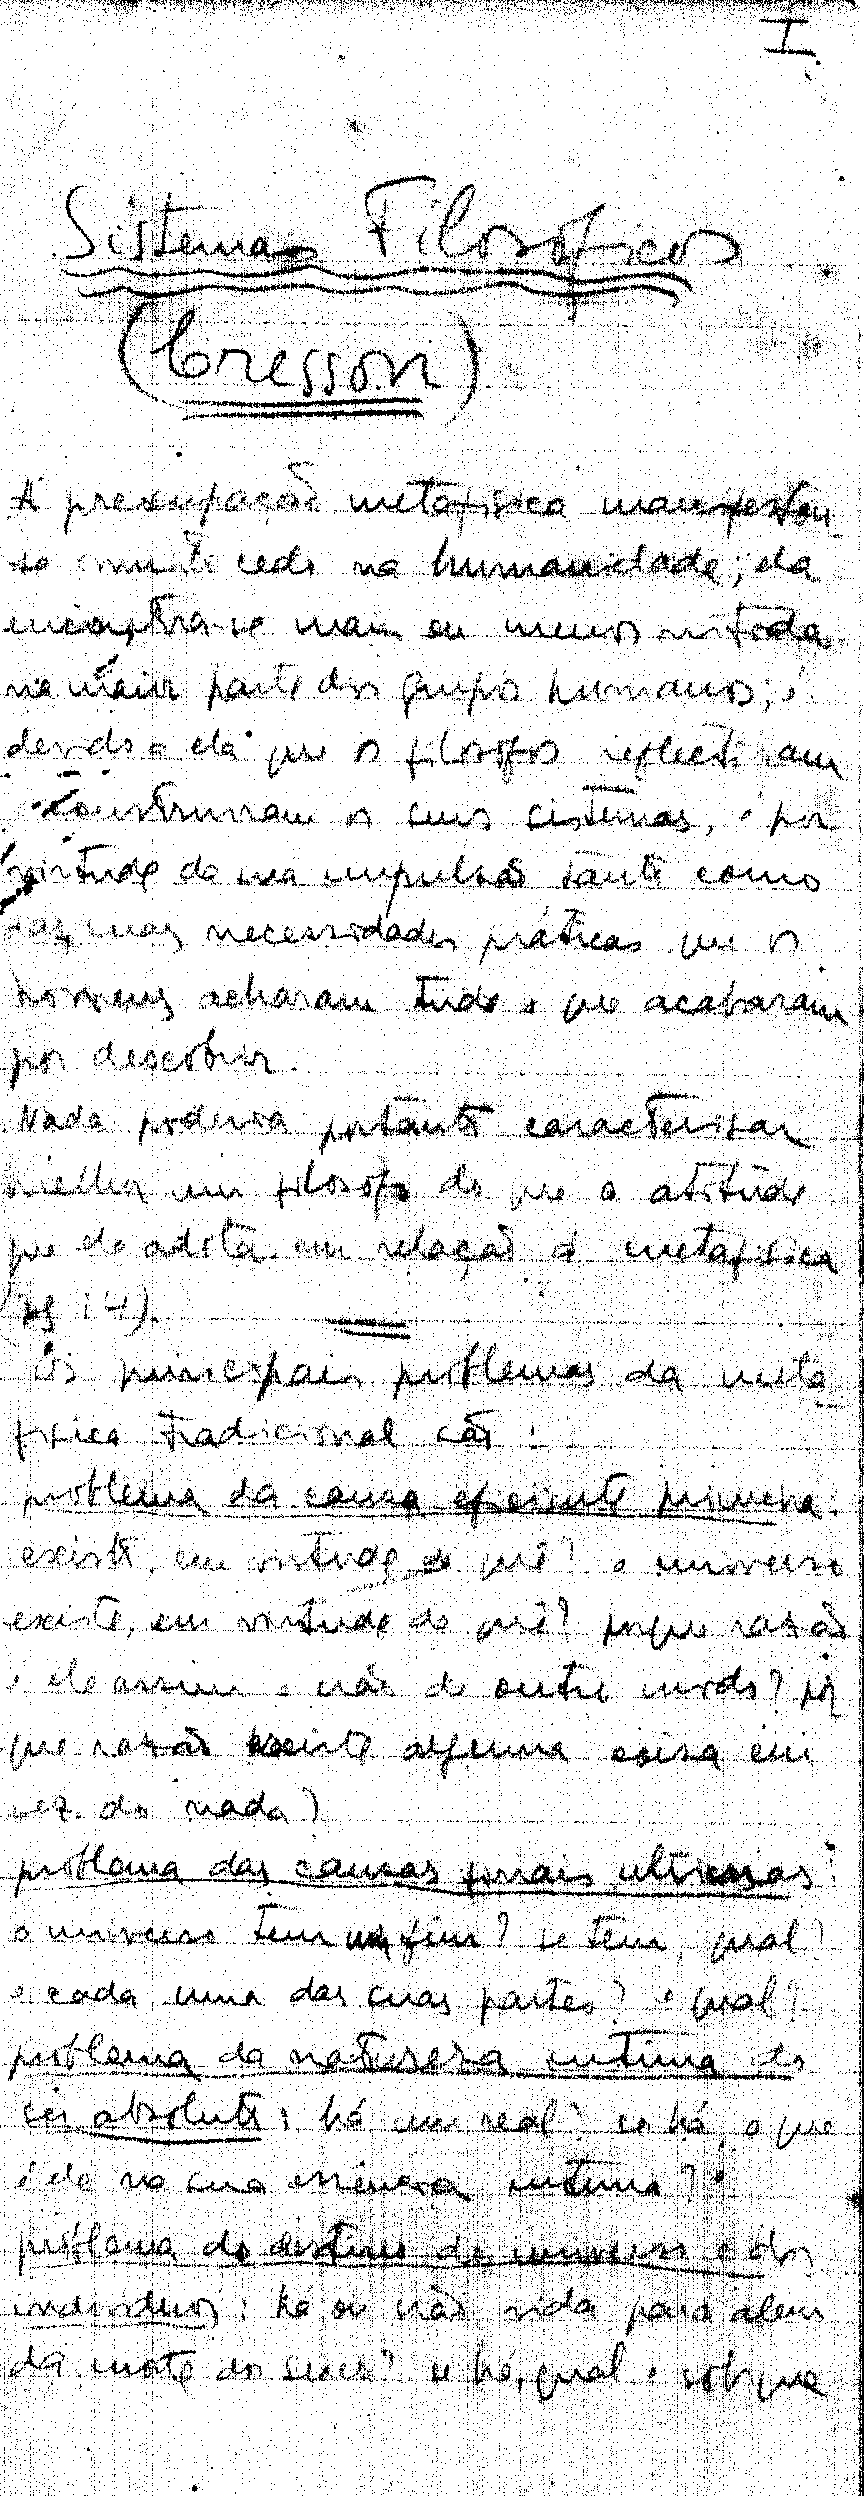 I.
Sistemas Filosóficos
(Cresson)
A preocupação metafísica manifestou-
se muito cedo na humanidade; ela
encontra-se mais ou menos nítida
na maior parte dos grupos humanos; é
devido a ela que os filósofos reflectiram
construíram os seus sistemas, é por
virtude da sua impulsão tanto como
das suas necessidades práticas que os
homens acharam tudo o que acabaram
por descobrir.
Nada poderia portanto caracterizar
melhor um filósofo do que a atitude
que ele adota em relação à metafísica
Os principais problemas da meta
física tradicional são:
problema da causa eficiente primeira:
existe, em virtude de quê? o universo
existe, em virtude de quê? porque razão
é ele assim e não de outro modo? por
que razão existe alguma coisa em
vez do nada?
problema das causas finais ultimas:
o universo tem um fim? se tem, qual?
e cada uma das suas partes? e qual?
problema da natureza intima do
ser absoluto: há um real? se há, o que
é ele na sua essência interna?
problema do destino do universo e dos
individuos: há ou não vida para alem
da morte dos seres? se há, qual e sob que